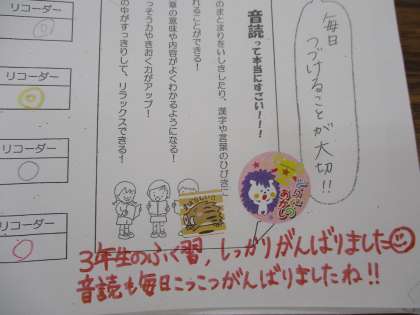 毎日
つづけることが大切!!
音読って本当にすごい!!!
のまとまりをいしきしたり、漢字や言葉のひびきに
れることができる!
章の意味や内容がよくわかるようになる!
っそう力やきおく力がアップ!
の中がすっきりして、リラックスできる!
リコーダー
リコーダー
リコーダー
リコーダー
3年生のふく習,しっかりがんばりました
音読も毎日こつこつがんばりましたね!!